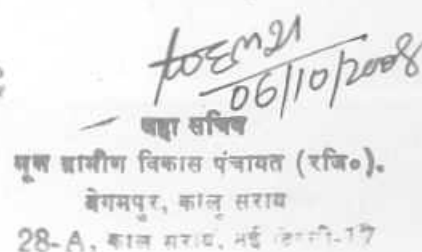 06/10/2008
महा सचिव
मूल ग्रामीण विकास पंचायत (रजि०).
बेगमपुर, कालू सराय
28-A, कालू सराय, नई दिल्ली-17